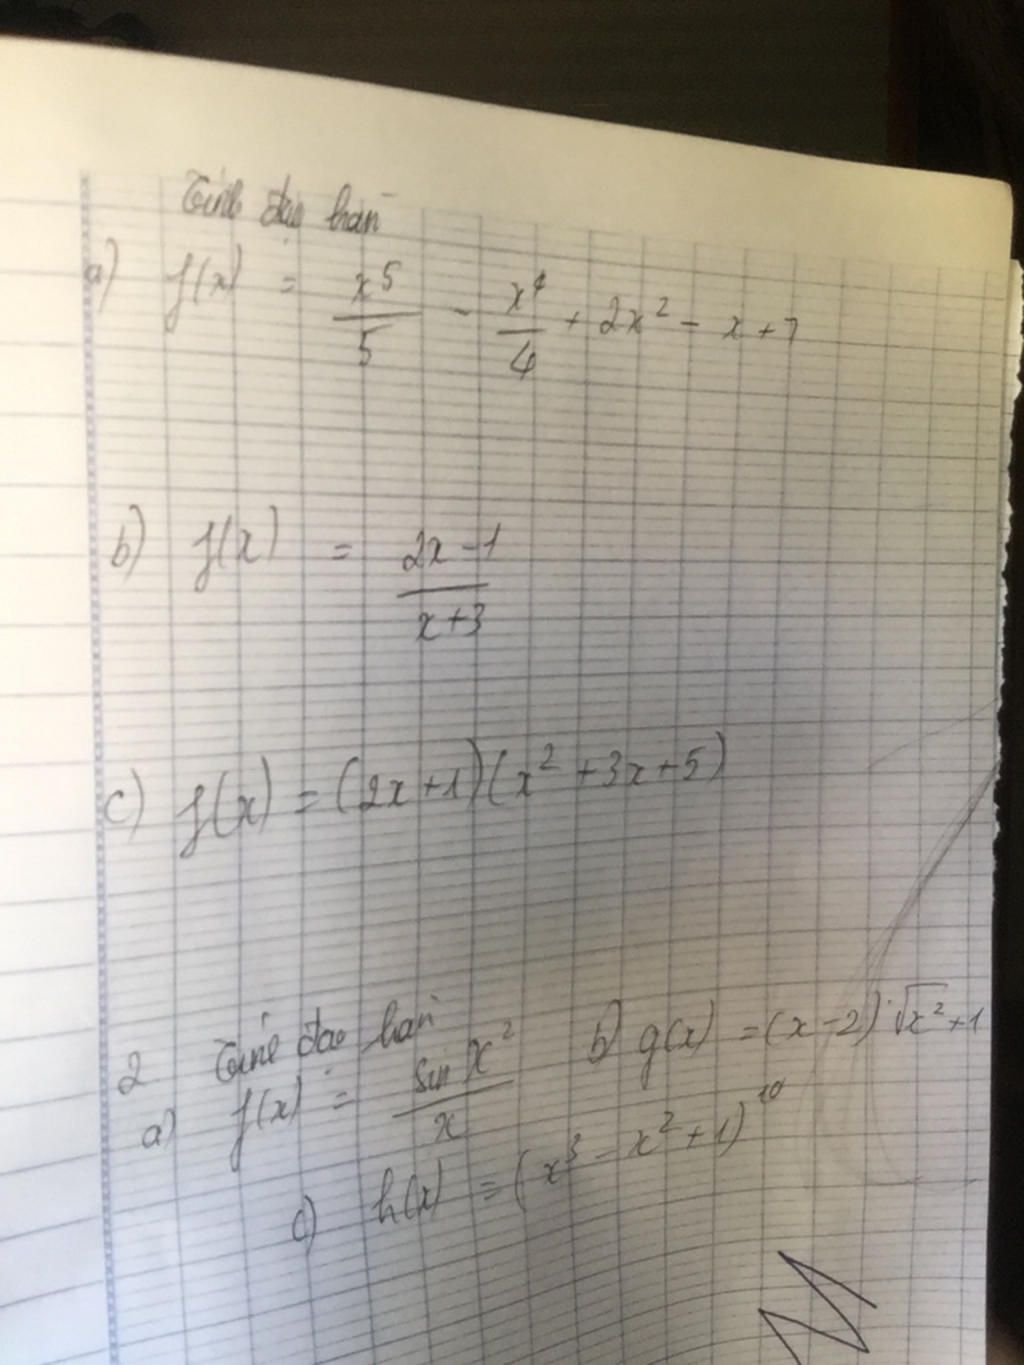 Tính đạo hàm
a) f(x) = x⁵/5 - x⁴/4 + 2x² - x + 7
b) f(x) = (2x - 1)/(x + 3)
c) f(x) = (2x + 1)(x² + 3x + 5)
2 Tính đạo hàm
a) f(x) = sin x²/x b) g(x) = (x - 2)·√x² + 1
c) h(x) = (x³ - x² + 1)¹⁰